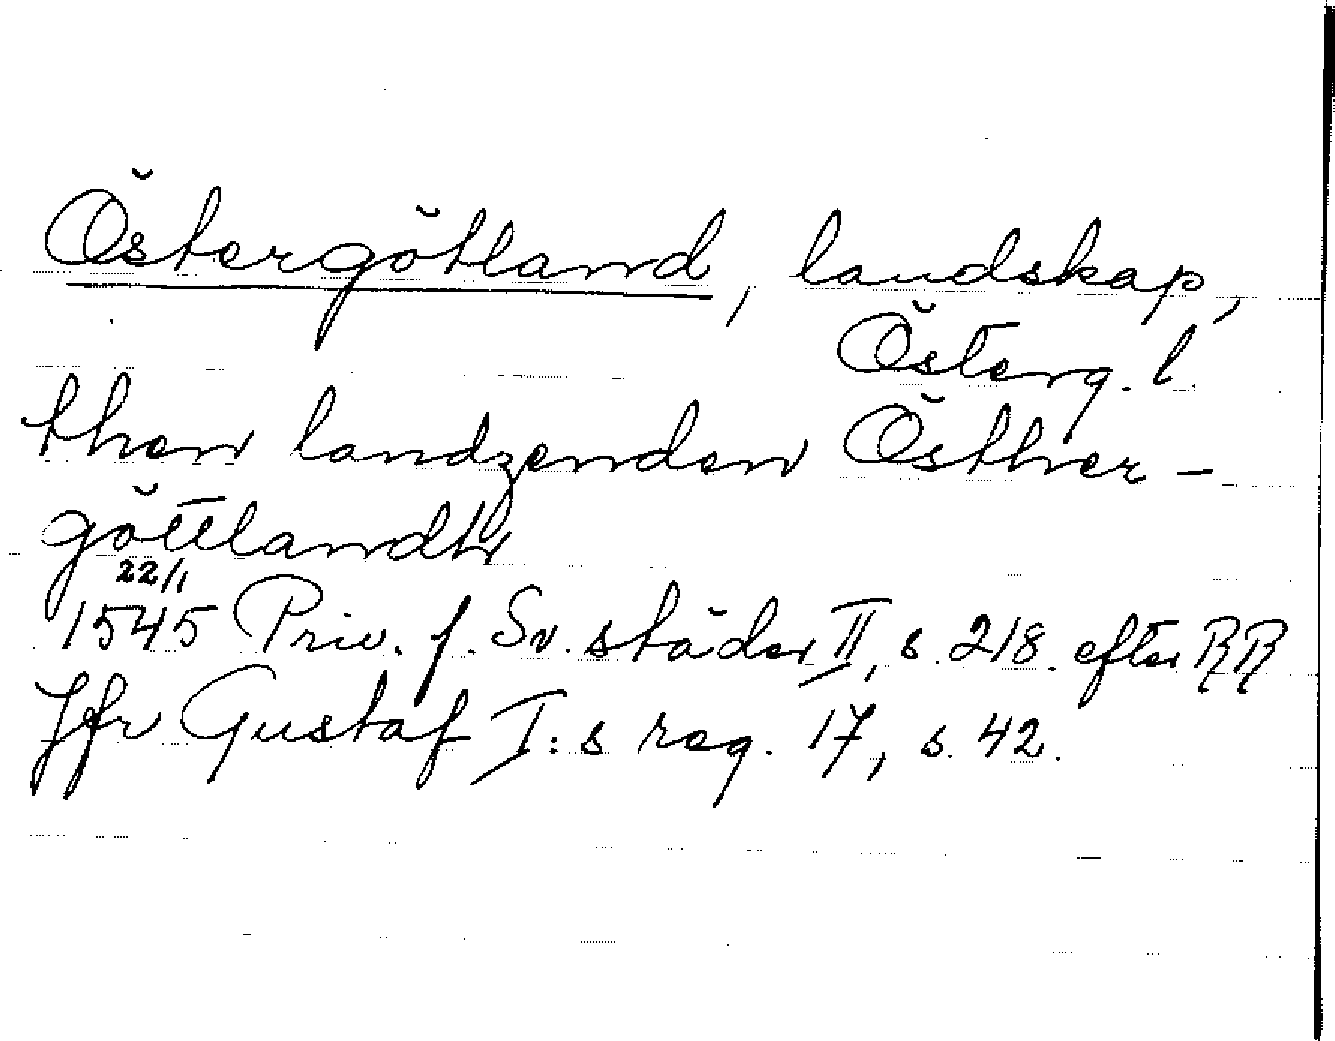 Östergötland, landskap,
Österg. l.
then landzenden Östher-
göttlandh
22/1
1545 Priv. f. Sv. städer II, s. 218. efter RR
Jfr Gustaf I:s reg. 17, s. 42.